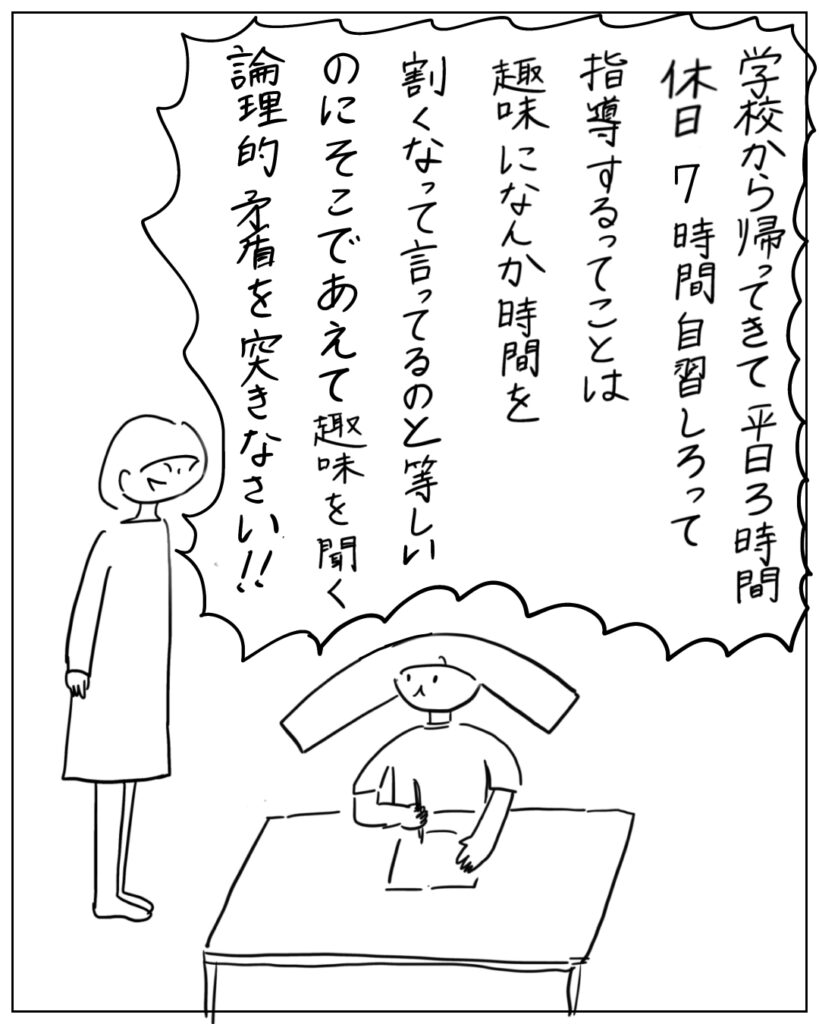 学校から帰ってきて平日3時間
休日7時間自習しろって
指導するってことは
趣味になんか時間を
割くなって言ってるのと等しい
のにそこであえて趣味を聞く
論理的矛盾を突きなさい!!